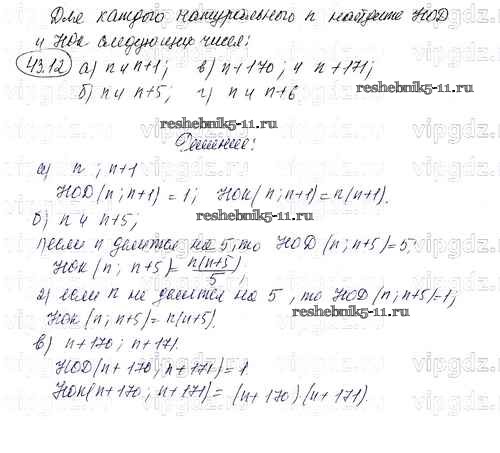 Для каждого натурального n найдите НОД
и НОК следующих чисел:
43.12 а) n и n+1; в) n+170; и n+171;
б) n и n+5; г) n и n+6
reshebnik5-11.ru
Решение:
а) n ; n+1
НОД(n; n+1) = 1; НОК(n; n+1) = n(n+1).
б) n и n+5; reshebnik5-11.ru
1) если n делится на 5, то НОД (n; n+5) = 5;
НОК (n; n+5) = n(n+5)/5;
2) если n не делится на 5, то НОД(n; n+5)=1;
НОК (n; n+5) = n(n+5). reshebnik5-11.ru
в) n+170; n+171.
НОД(n+170; n+171) = 1.
НОК(n+170; n+171) = (n+170)(n+171).